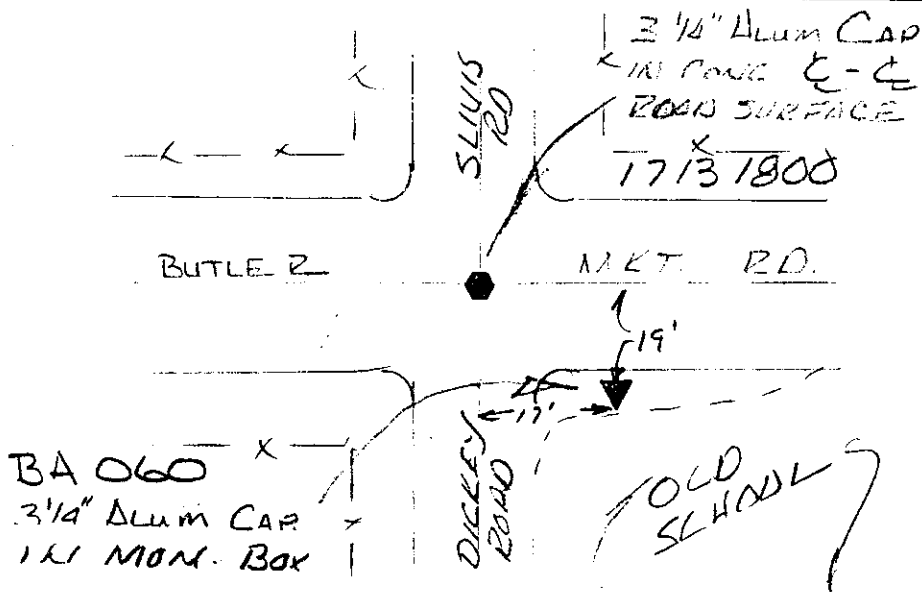 3 1/4" ALUM CAP
IN CONC ℄-℄
ROAD SURFACE
17131800
SLIVIS
RD
BUTLER
MKT. RD.
19'
17'
BA 060
3 1/4" ALUM CAP
IN MON. BOX
DICKEY
ROAD
OLD
SCHOOL